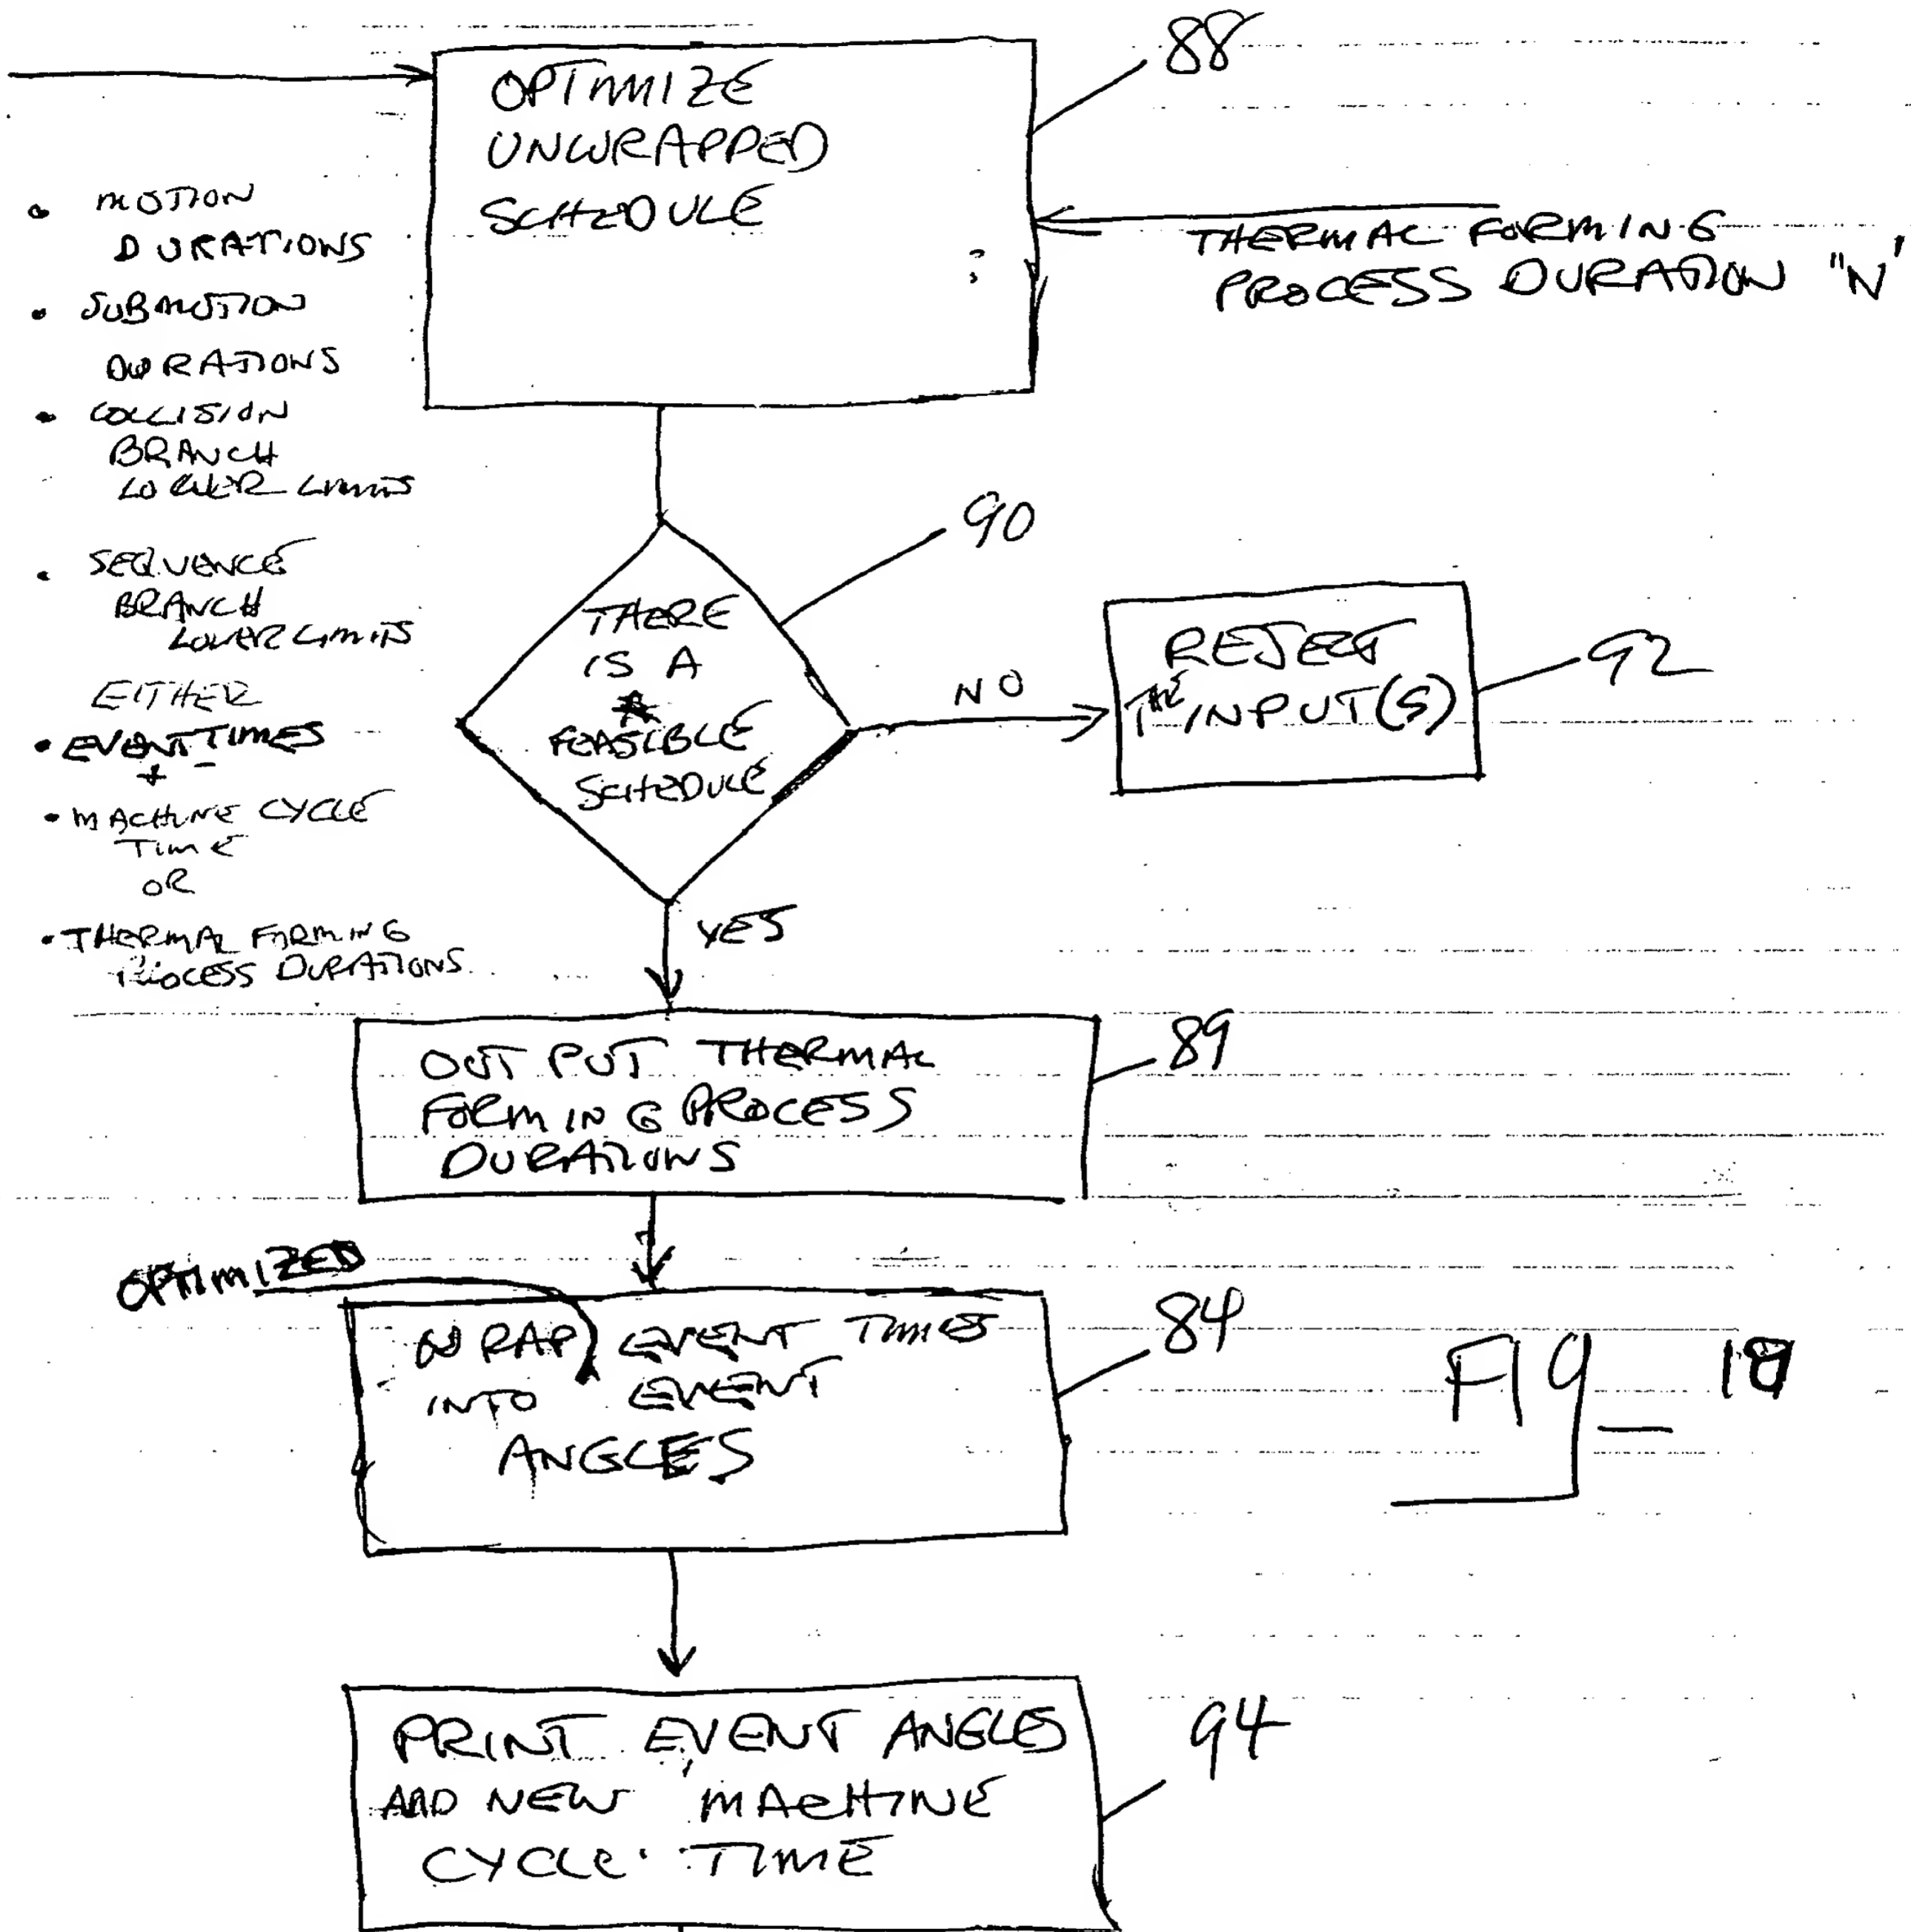 88
OPTIMIZE
UNWRAPPED
SCHEDULE
THERMAL FORMING
PROCESS DURATION "N'
• MOTION
DURATIONS
• SUBMOTION
DURATIONS
• COLLISION
BRANCH
LOWER LIMITS
• SEQUENCE
BRANCH
LOWER LIMITS
EITHER
• EVENT TIMES
+
• MACHINE CYCLE
TIME
OR
• THERMAL FORMING
PROCESS DURATIONS
90
THERE
IS A
FEASIBLE
SCHEDULE
NO
REJECT
THE INPUT(S)
92
YES
OUTPUT THERMAL
FORMING PROCESS
DURATIONS
89
OPTIMIZED
WRAP EVENT TIMES
INTO EVENT
ANGLES
84
FIG_
PRINT EVENT ANGLES
AND NEW MACHINE
CYCLE TIME
94